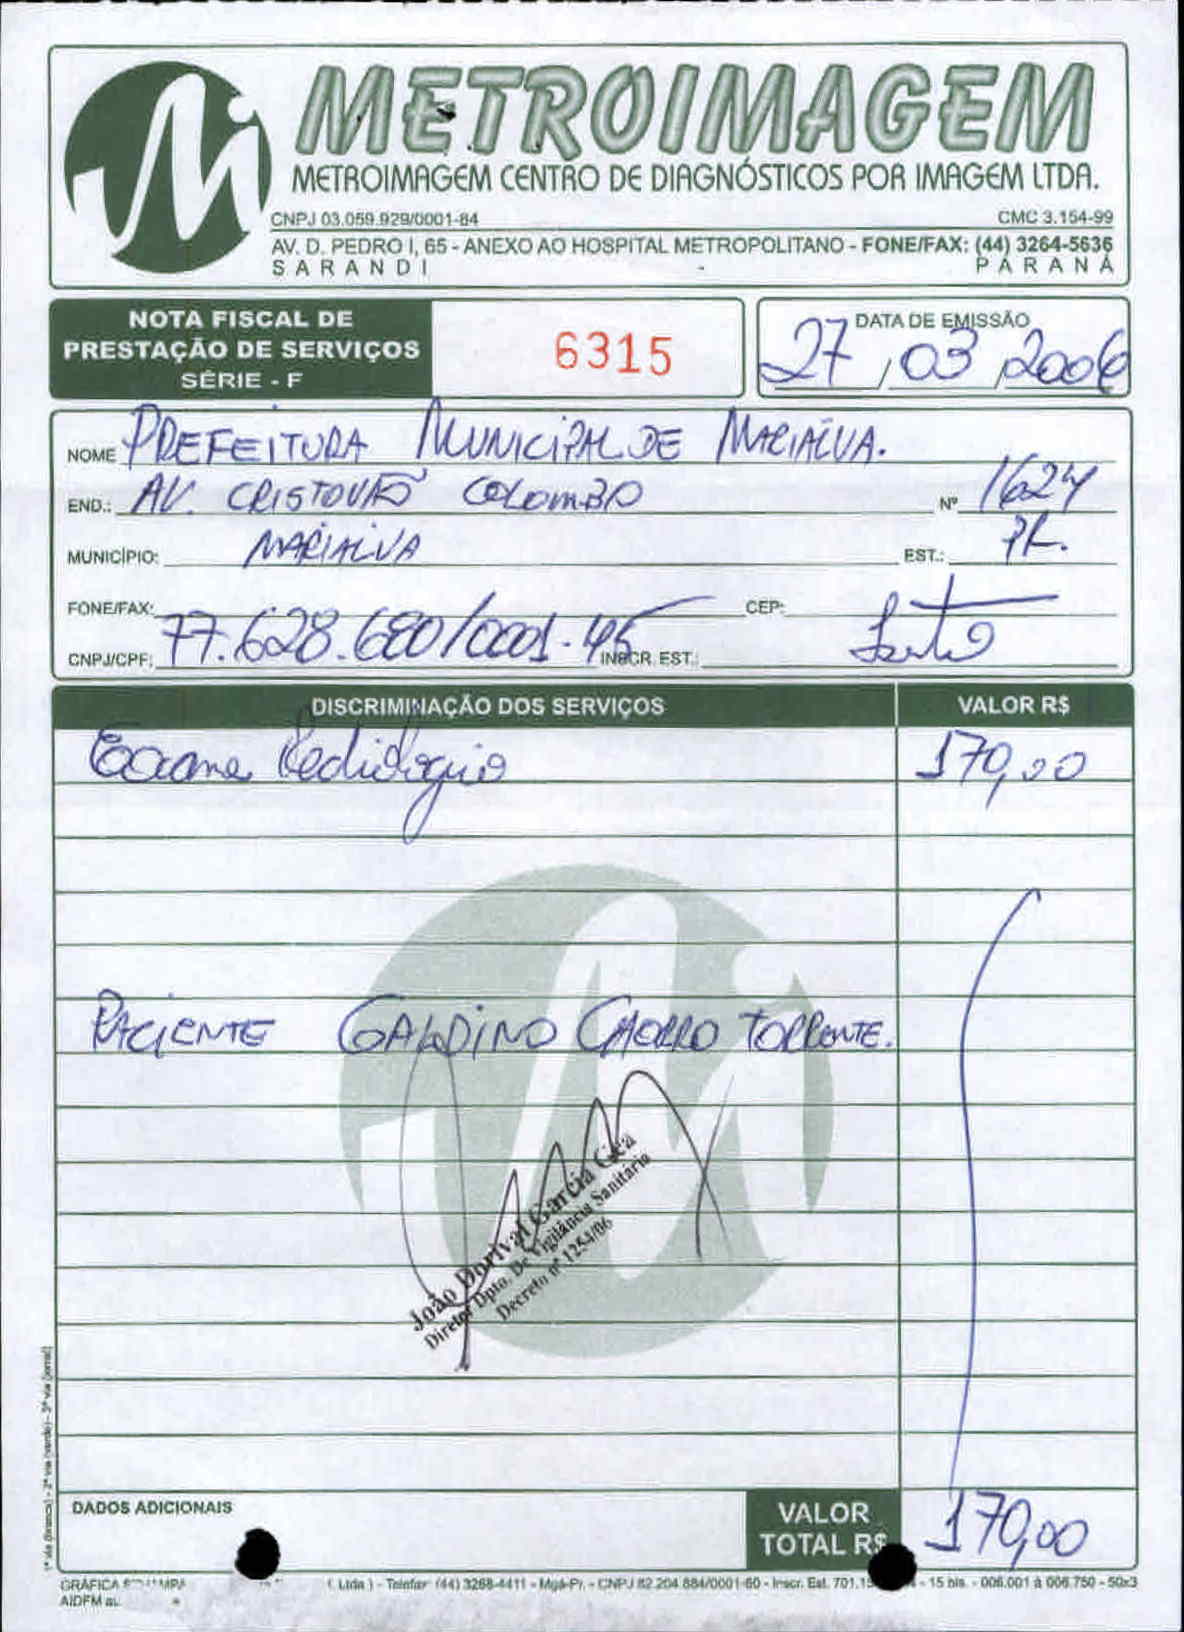 METROIMAGEM
METROIMAGEM CENTRO DE DIAGNÓSTICOS POR IMAGEM LTDA.
CNPJ 03.059.929/0001-84 CMC 3.154-99
AV. D. PEDRO I, 65 - ANEXO AO HOSPITAL METROPOLITANO - FONE/FAX: (44) 3264-5636
SARANDI PARANÁ
NOTA FISCAL DE
PRESTAÇÃO DE SERVIÇOS
SÉRIE - F
6315
DATA DE EMISSÃO
27/03/2006
NOME PREFEITURA MUNICIPAL DE MARIALVA.
END.: AV. CRISTOVÃO COLOMBO Nº 1624
MUNICÍPIO: MARIALVA EST.: PR.
FONE/FAX: CEP:
CNPJ/CPF: 77.628.680/0001-45 INSCR. EST.:
DISCRIMINAÇÃO DOS SERVIÇOS VALOR R$
Exame 170,00
PACIENTE GALDINO CHORRO TORRENTE.
João Dorival Garcia
Diretor Dpto. De Vigilância Sanitária
Decreto nº 1254/06
DADOS ADICIONAIS
VALOR TOTAL R$ 170,00
1ª via (branca) - 2ª via (verde) - 3ª via (jornal)
GRÁFICA Ltda - Telefax: (44) 3268-4411 - Mgá-Pr. - CNPJ 82.204.884/0001-60 - Inscr. Est. 701. - 15 bls. - 006.001 à 006.750 - 50x3
AIDFM